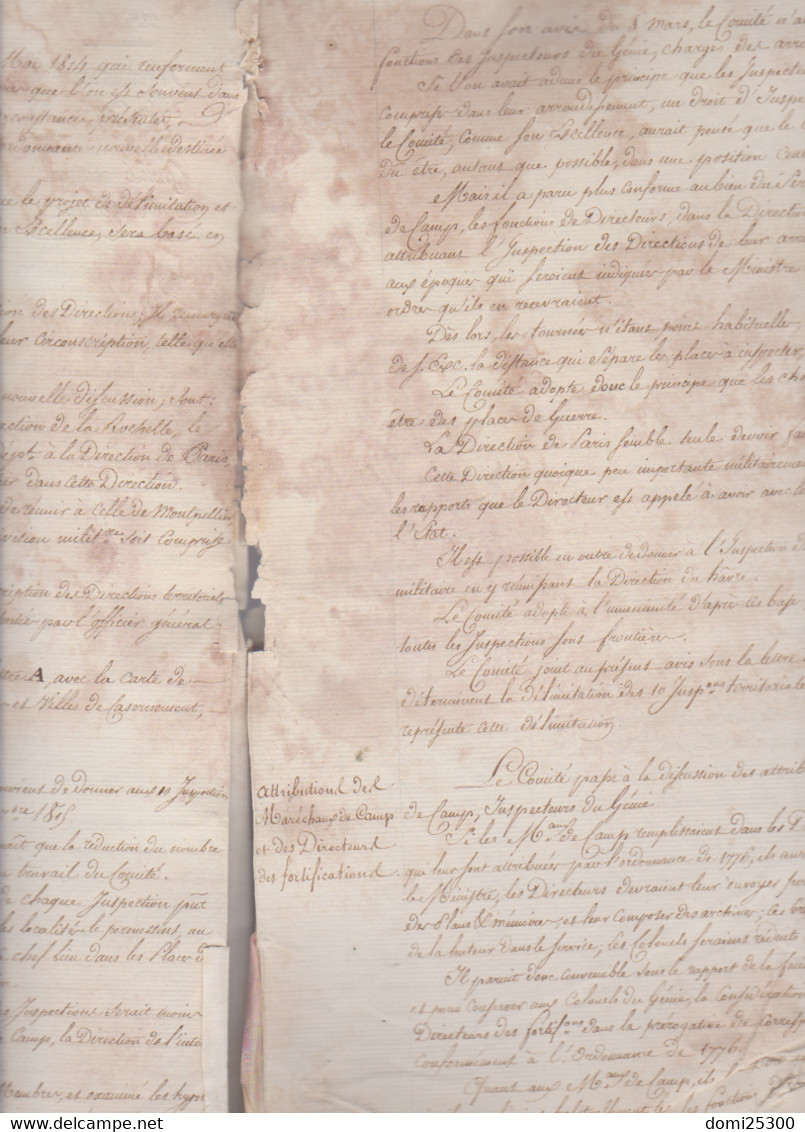 Mai 1814 qui renferment
que l'on est souvent dans
circonstances précitées, D'
ordonnance nouvelle destinée
le projet de délimitation et
Excellence, sera basé en
des Directions, Il remarque
leur circonscription, telle qu'elle
nouvelle discussion, sont:
Direction de la Rochelle, le
Dépt. à la Direction de Paris,
dans cette Direction.
de réunir à celle de Montpellier
soit comprise
des Directions territoriales
par l'officier général
A, avec la carte de
et Villes de Casernement,
de donner aux 10 Inspections
1815.
que la réduction du nombre
travail du Comité.
de chaque Inspection pût
les localités le permettent, au
chef lieu dans les Places de
Inspections serait moins
Camp, la Direction de l'inté
Membres, et examiné les
Dans son avis du 8 mars, le Comité n'a
fonctions des Inspecteurs du Génie, chargés des arro
Si l'on avait admis le principe que les Inspecte
compris dans leur arrondissement, un droit d'Inspe
le Comité, comme son Excellence, aurait pensé que le
du être, autant que possible, dans une position cen
Mais il a paru plus conforme au bien du Ser
de Camp, les fonctions de Directeurs, dans la Directio
attribuant l'Inspection des Directions de leur arro
aux époques qui seroient indiquées par le Ministre
ordres qu'ils en recevraient.
Dès lors, les tournées n'étant point habituelles,
de S. Exc. la distance qui sépare les places à inspecter,
Le Comité adopte donc le principe que les che
être des places de Guerre.
La Direction de Paris semble seule devoir fai
Cette Direction quoique peu importante militairement
les rapports que le Directeur est appelé à avoir avec le
l'Etat.
Il est possible en outre de donner à l'Inspection de
militaire en y réunissant la Direction du havre.
Le Comité adopte à l'unanimité d'après ces base
toutes les Inspections sont frontière.
Le Comité joint au présent avis sous la lettre
déterminent la délimitation des 10 Insp.ons territoriales
représente cette délimitation.
Attributions des
Maréchaux de Camp
et des Directeurs
des fortifications.
Le Comité passe à la discussion des attrib
de Camp, Inspecteurs du Génie.
Si les M.aux de Camp remplissaient dans les
qui leur sont attribuées par l'ordonnance de 1776, ils aur
le Ministre, les Directeurs devraient leur envoyer
des Plans & mémoires, et leur composer des archives;
de la hauteur dans le service; les Colonels seraient réduits
Il paraît donc convenable sous le rapport de la faci
et pour conserver aux Colonels du Génie, la Considération
Directeurs des fortif.ons dans la prérogative de corresp
conformément à l'Ordonnance de 1776.
Quant aux M.aux de Camp, ils
habituellement les fonctions
delcampe.net
domi25300